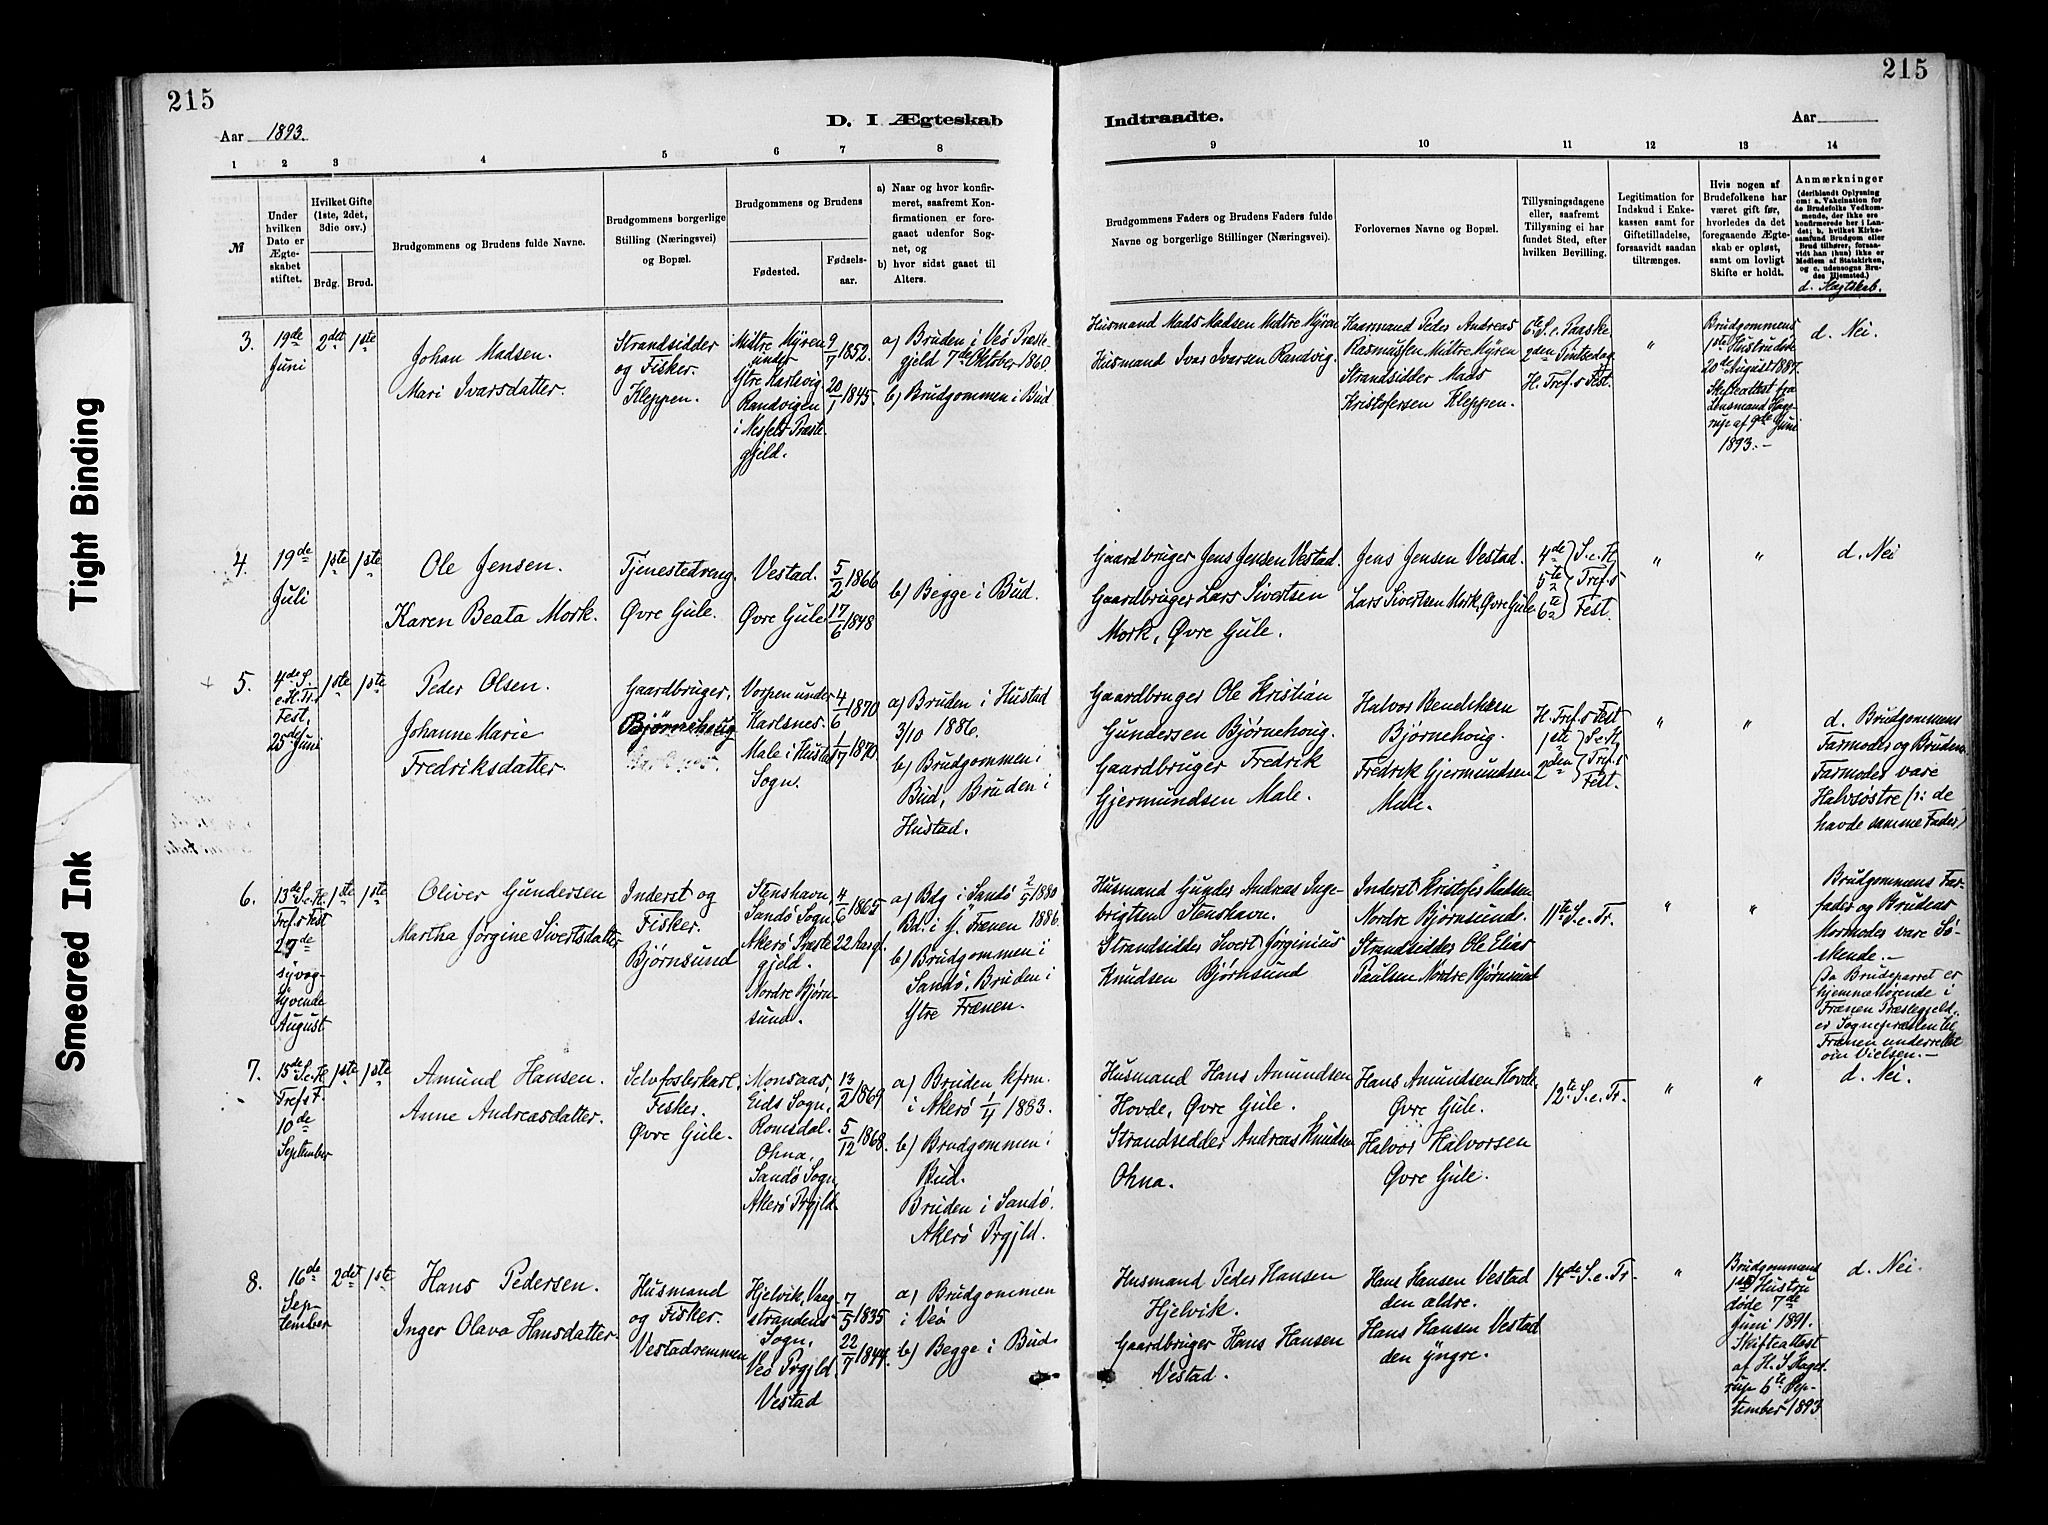 215
215
Aar 1893.
D. I Ægteskab
Indtraadte.
Aar
1 2 3 4 5 6 7 8
9 10 11 12 13 14
№
Under hvilken Dato er Ægteskabet stiftet.
Hvilket Gifte (1ste, 2det, 3die osv.)
Brdg. Brud.
Brudgommens og Brudens fulde Navne.
Brudgommens borgerlige Stilling (Næringsvei) og Bopæl.
Brudgommens og Brudens
Fødested.
Fødselsaar.
a) Naar og hvor konfirmeret, saafremt Konfirmationen er foregaaet udenfor Sognet, og
b) hvor sidst gaaet til Alters.
Brudgommens Faders og Brudens Faders fulde Navne og borgerlige Stillinger (Næringsvei).
Forlovernes Navne og Bopæl.
Tillysningsdagene eller, saafremt Tillysning ei har fundet Sted, efter hvilken Bevilling.
Legitimation for Indskud i Enkekassen samt for Giftetilladelse, forsaavidt saadan tiltrænges.
Hvis nogen af Brudefolkene har været gift før, hvorledes da det foregaaende Ægteskab er opløst, samt om lovligt Skifte er holdt.
Anmærkninger
(deriblandt Oplysning om: a. Vakcination for de Brudefolks Vedkommende, der ikke ere konfirmerede her i Landet; b. hvilket Kirkesamfund Brudgom eller Brud tilhører, forsaavidt han (hun) ikke er Medlem af Statskirken, og c. udensogns Brudes Hjemsted.)
d. Slægtskab.
3.
19de
Juni
2det 1ste
Johan Madsen.
Mari Ivarsdatter.
Strandsidder
og Fisker.
Kleppen.
Midtre Myren
under
Ytre Karlsvig.
Randvigen
i Nesset Præste-
gjeld.
9/7 1852.
20/1 1845.
a) Bruden i Veø Præste-
gjeld 7de Oktober 1860.
b) Brudgommen i Bud
Husmand Mads Madsen Midtre Myren
Husmand Ivar Ivarsen Randvig.
Kaarmand Peder Andreas
Rasmussen Midtre Myren
Strandsidder Mads
Kristofersen Kleppen.
6te S. e. Paaske
2den Pintsedag
H. Tref.s Fest.
"
Brudgommens
1ste Hustru døde
20de August 1887.
Skifteattest fra
Lensmand Hage-
rup af 9de Juni
1893.-
d. Nei.
4.
19de
Juli
1ste 1ste
Ole Jensen.
Karen Beata Mork.
Tjenestedreng.
Øvre Gule.
Vestad.
Øvre Gule
5/2 1866
17/6 1848
b) Begge i Bud.
Gaardbruger Jens Jensen Vestad.
Gaardbruger Lars Sivertsen
Mork, Øvre Gule.
Jens Jensen Vestad.
Lars Sivertsen Mork, Øvre Gule
4de S. e. H.
5te Tref.s
6te Fest.
"
"
d. Nei
5.
4de S.
e. H. Tr.
Fest,
25de Juni
1ste 1ste
Peder Olsen.
Johanne Marie
Fredriksdatter.
Gaardbruger.
Bjørnehoug
Vorpen under
Karlsnes.
Male i Hustad
Sogn.
4/6 1870
1/7 1870
a) Bruden i Hustad
3/10 1886.
b) Brudgommen i
Bud, Bruden i
Hustad.
Gaardbruger Ole Kristian
Gundersen Bjørnehoug.
Gaardbruger Fredrik
Gjermundsen Male.
Halvor Bendiksen
Bjørnehoug.
Fredrik Gjermundsen
Male.
H. Tref.s Fest
1ste S. e. H.
2den Tref.s
Fest.
"
"
d. Brudgommens
Farmoder og Brudens
Farmoder vare
Halvsøstre (ɔ: de
havde samme Fader)
6.
13de S. e. H.
Tref.s Fest
27de
syvog-
tyvende
August
1ste 1ste
Oliver Gundersen
Martha Jørgine Sivertsdatter
Inderst og
Fisker.
Bjørnsund
Stenshavn,
Sandø Sogn,
Akerø Præste-
gjeld.
Nordre Bjørn-
sund.
4/6 1865
22 Aar gl.
a) Bdg. i Sandø 2/5 1880
Bd. i Y. Frænen 1886.
b) Brudgommen i
Sandø, Bruden i
Ytre Frænen.
Husmand Gunder Andreas Inge-
brigtsen Stenshavn.
Strandsidder Sivert Jørginius
Knudsen Bjørnsund
Inderst Kristofer Madsen
Nordre Bjørnsund.
Strandsidder Ole Elias
Paulsen Nordre Bjørnsund
11te S. e. Tr.
"
"
Brudgommens Far-
fader og Brudens
Mormoder vare Sø-
skende.-
Da Brudeparret er
hjemmehørende i
Frænen Præstegjeld,
er Sognepræsten til
Frænen underrettet
om Vielsen.-
7.
15de S. e. H.
Tref.s F.
10de
September
1ste 1ste
Amund Hansen.
Anne Andreasdatter.
Selvfosterkarl.
Fisker.
Øvre Gule.
Monsaas,
Eids Sogn,
Romsdal.
Ohna,
Sandø Sogn,
Akerø Prgjld.
13/2 1869
5/12 1868.
a) Bruden kfrm.
i Akerø 1/4 1883.
b) Brudgommen i
Bud.
Bruden i Sandø.
Akerø Prgjld.
Husmand Hans Amundsen
Hovde, Øvre Gule.
Strandsidder Andreas Knudsen
Ohna.
Hans Amundsen Hovde
Øvre Gule.
Halvor Halvorsen
Øvre Gule.
12te S. e. Tr.
"
"
d. Nei.
8.
16de
Sep-
tember
2det 1ste
Hans Pedersen.
Inger Olava Hansdatter.
Husmand
og Fisker.
Vestadremmen
Hjelvik, Vaag-
strandens
Sogn,
Veø Prgjld.
Vestad
7/5 1835
22/7 1844.
a) Brudgommen
i Veø
b) Begge i Bud.
Husmand Peder Hansen
Hjelvik.
Gaardbruger Hans Hansen
Vestad.
Hans Hansen Vestad
den ældre.
Hans Hansen Vestad
den yngre.
14de S. e. Tr.
"
Brudgommens
1ste Hustru
døde 7de
Juni 1891.
Skifteattest
af H. S. Hage-
rup 6te Sep-
tember 1893
d. Nei.
Tight Binding
Smeared Ink